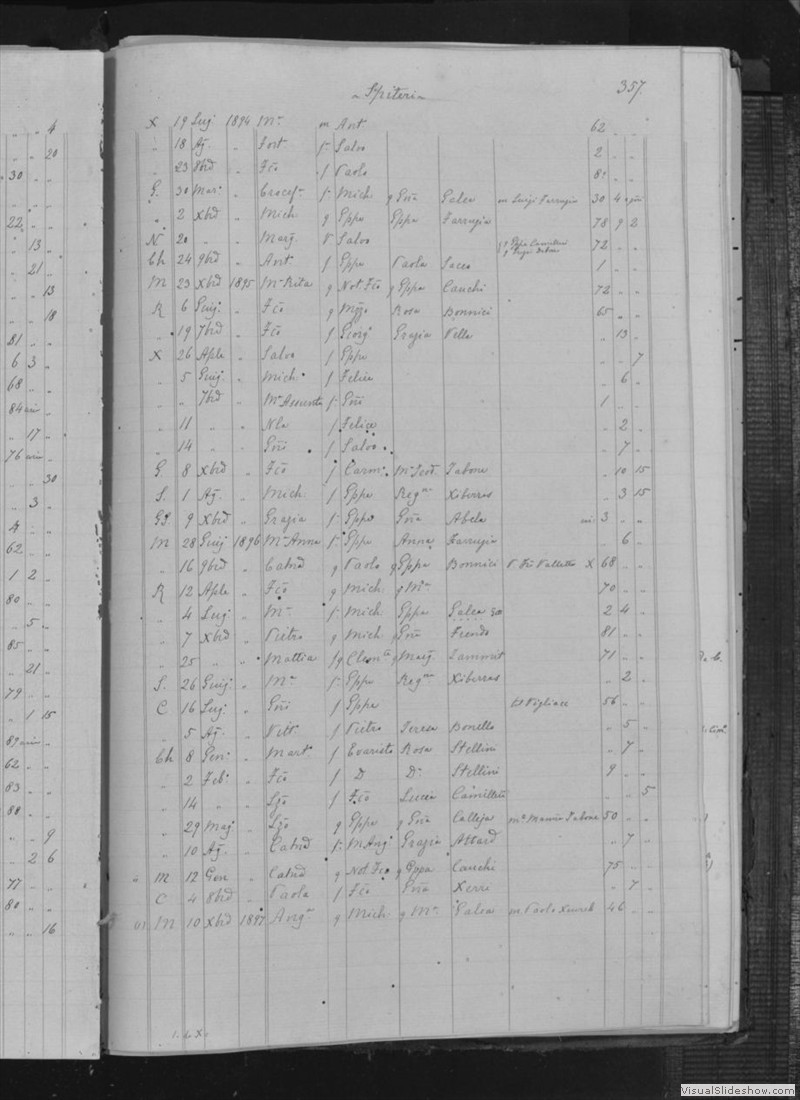 4
20
30
22
13
21
13
18
81
6 3
68
84
17
76
30
3
4
62
1 2
80
5
85
21
79
1 15
89
62
83
88
9
2 6
77
80
16
~ Spiteri ~ 357
X 19 Lug 1894 Ma m Ant 62 " "
" 18 Ag. " Fort f Salvo 2 " "
" 23 8bre " Fco f Paolo 81 " "
G. 30 Mar. " Crocefa f Mich g Gna Galea m Luigi Farrugia 30 4
" 2 Xbre " Mich g Gppe Gppa Farrugia 78 9 2
N 20 " " Marg. V Salvo 72 " "
Ch 24 9bre " Ant f Gppe Paola Sacco 1 " "
M 23 Xbre 1895 Ma Rita g Not Fco g Gppa Cauchi 72 " "
R 6 Giug. " Fco g Rosa Bonnici 65 " "
" 19 7bre " Fco f Giorg. Grazia Vella " 13 "
X 26 Aple " Salvo f Gppe " " 7
" 5 Giug. " Mich f Felice " 6 "
" " 7bre " Ma Assunta f Gni 1 " "
" 11 " " Nla f Felice " 2 "
" 14 " " Gni f Salvo " 7 "
G. 8 Xbre " Fco f Carm. Ma Teod. Tabone " 10 15
S. 1 Ag. " Mich f Gppe Regna Xiberras " 3 15
9 Xbre " Grazia f Gppe Gna Abela 3 " "
M 28 Giug 1896 Ma Anna f Gppe Anna Farrugia " 6 "
" 16 9bre " Catna g Paolo g Gppa Bonnici V. Valletta X 68 " "
R 12 Aple " Fco g Mich g Ma 70 " "
" 4 Lug. " Ma f Mich Gppa Galea 2 4 "
" 7 Xbre " Pietro g Mich g Gna Frendo 81 " "
" 25 " " Mattia fg Clemte g Marg. Zammit 71 " "
S. 26 Giug. " Ma f Gppe Regna Xiberras " 2 "
C 16 Lug. " Gni f Gppe 56 " "
" 5 Ag. " Vitt. f Pietro Teresa Bonello " 5 "
Ch 8 Gen. " Mart. f Evaristo Rosa Stellini " 7 "
" 2 Feb. " Fco f D. Da Stellini 9 " "
" 14 " " Lzo f Fco Lucia Camilleri " " 5
" 29 Mag. " Lzo g Gppe g Gna Calleja ma Maria Tabone 50 " "
" 10 Ag. " Catna f M Ang. Grazia Attard " 7 "
M 12 Gen " Catna g Not Fco g Gppa Cauchi 75 " "
C 4 8bre " Paola f Fco Gna Xerri " 7 "
M 10 Xbre 1897 Anga g Mich g Ma Galea m Paolo Xuereb 46 " "
VisualSlideshow.com